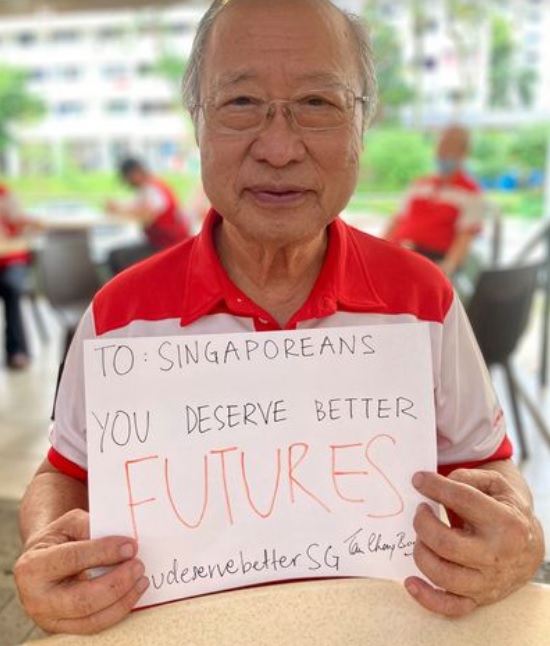 TO: SINGAPOREANS
YOU DESERVE BETTER
FUTURES
udeservebetterSG Tan Cheng Bo